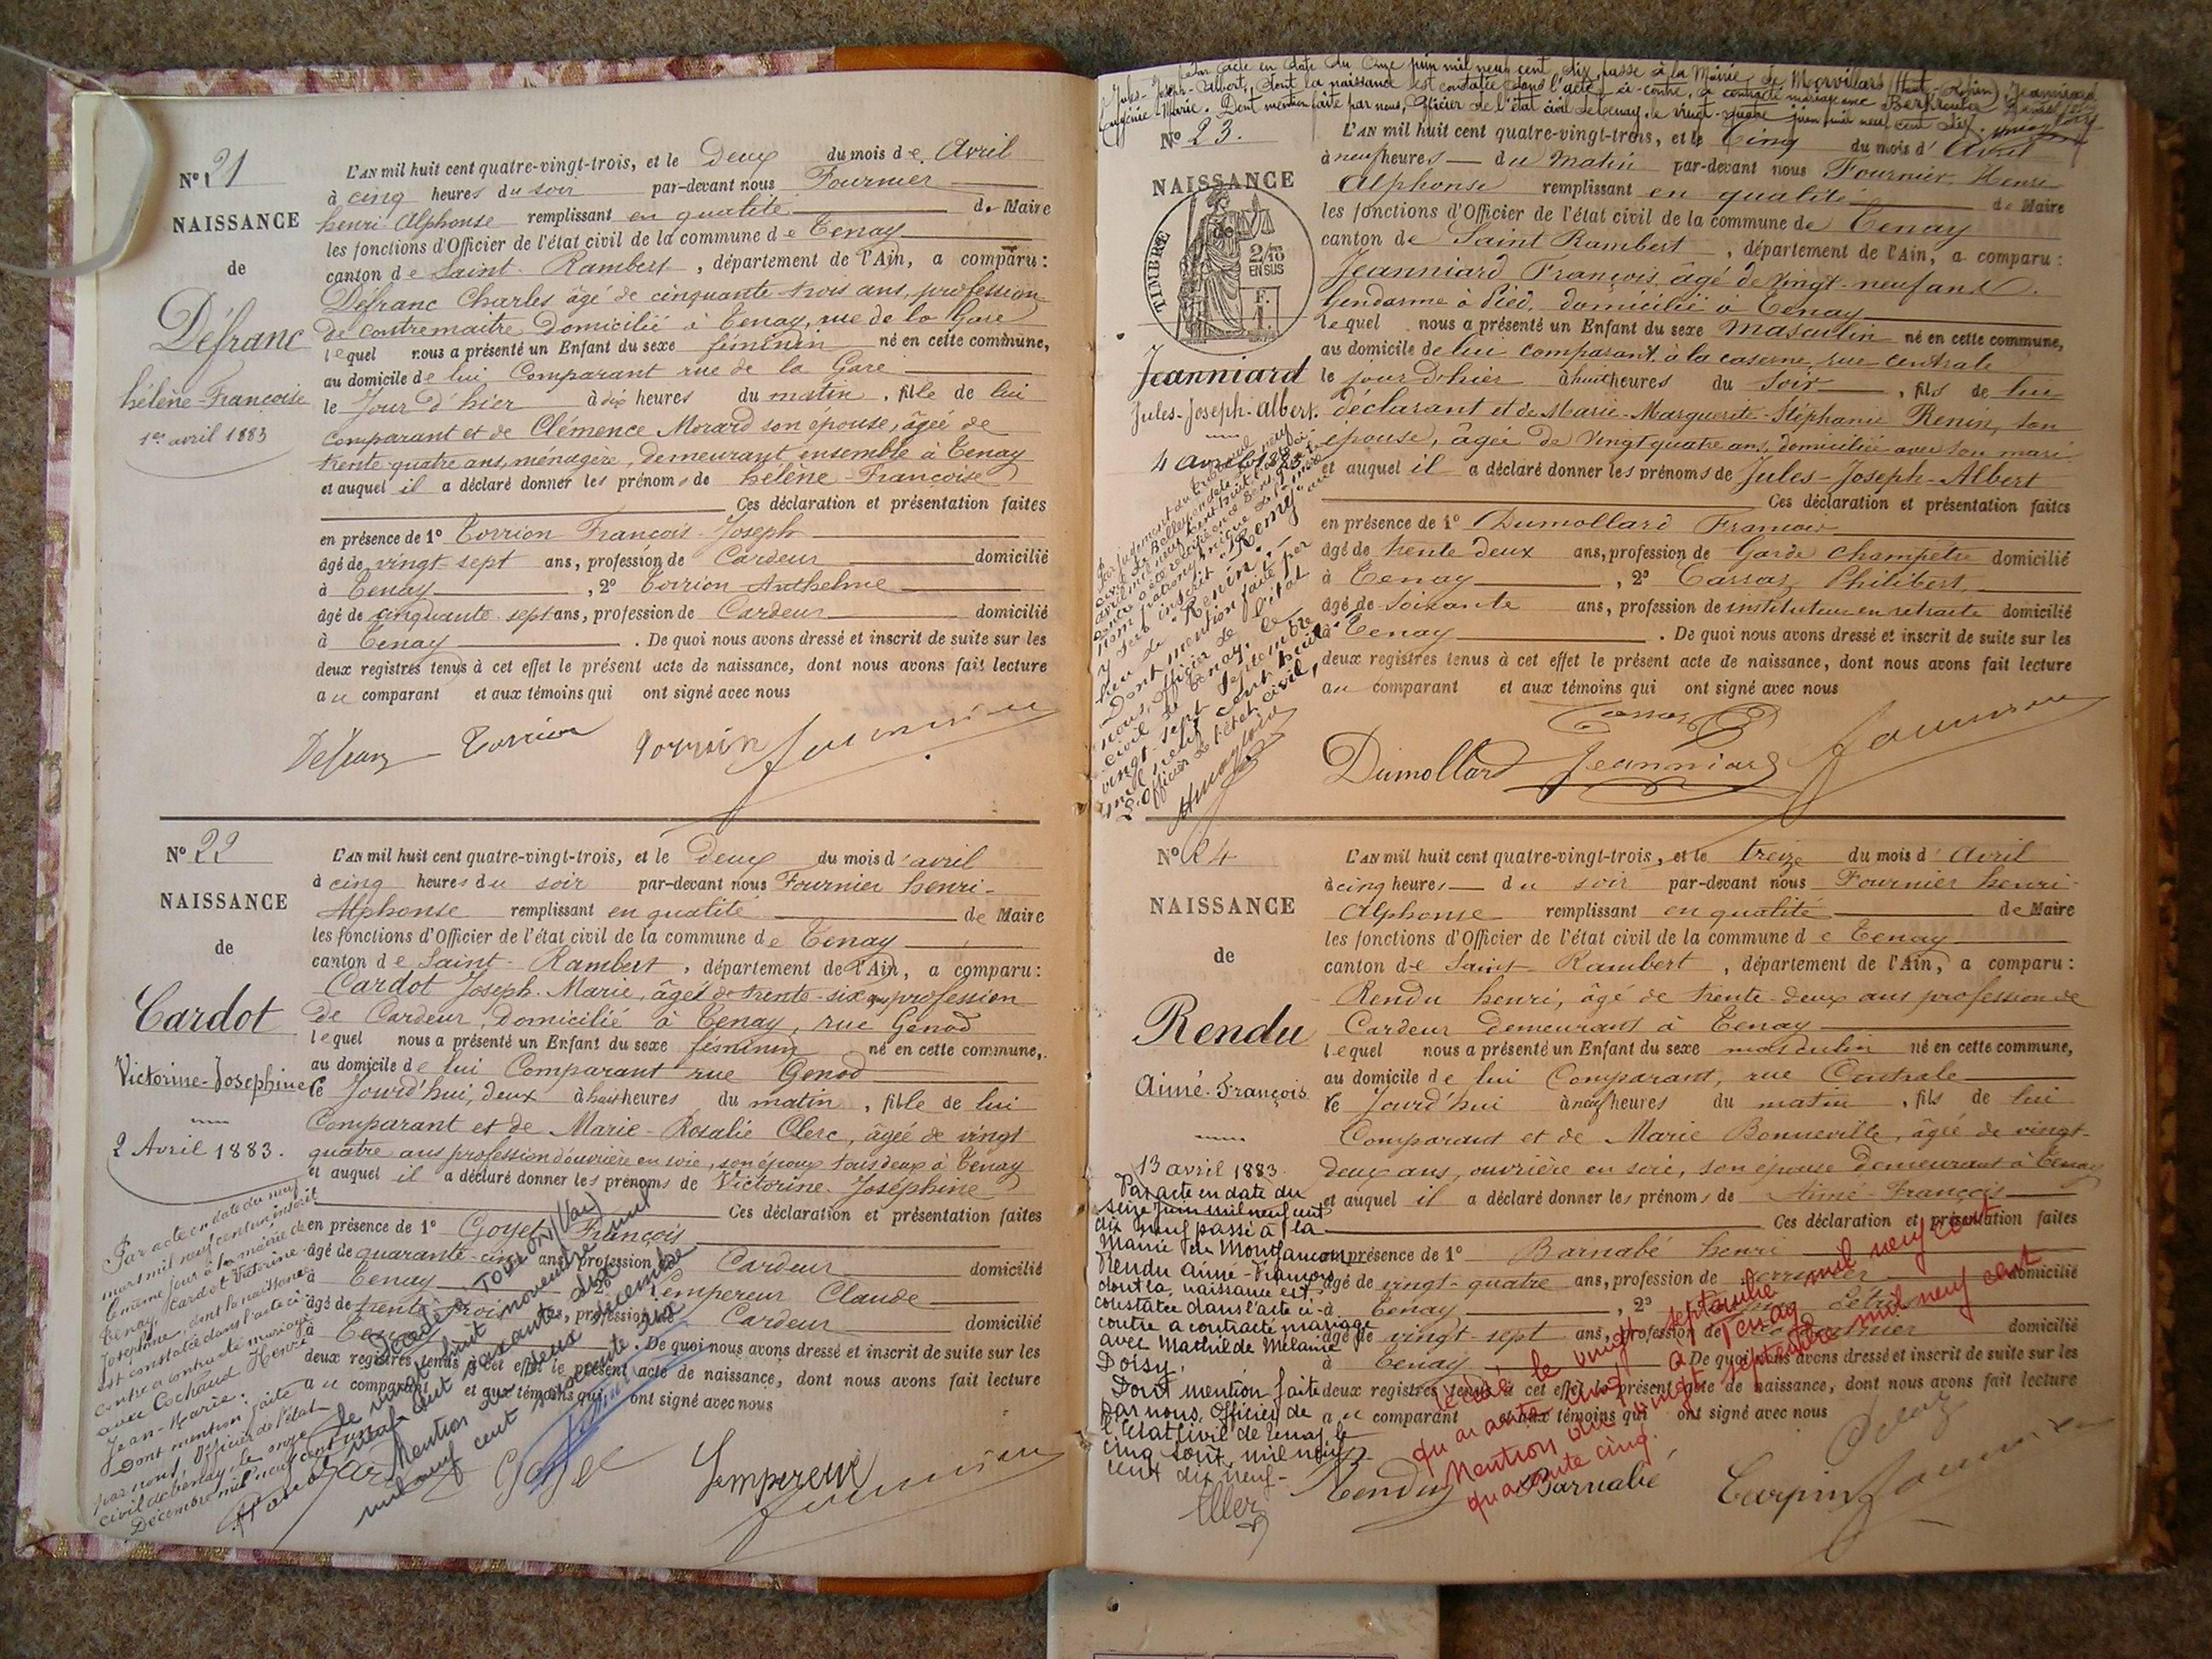 N° 21
NAISSANCE
de
Défranc
hélène-Françoise
1er avril 1883
L'AN mil huit cent quatre-vingt-trois, et le Deux du mois de Avril
à cinq heures du soir par-devant nous Fournier
henri Alphonse remplissant en qualité de Maire
les fonctions d'Officier de l'état civil de la commune de Tenay
canton de Saint-Rambert, département de l'Ain, a comparu :
Défranc Charles âgé de cinquante trois ans, profession
de contremaitre Domicilié à Tenay, rue de la Gare
lequel nous a présenté un Enfant du sexe féminin né en cette commune,
au domicile de lui Comparant rue de la Gare
le Jour d'hier à dix heures du matin, fille de lui
comparant et de Clémence Morard son épouse, âgée de
trente quatre ans, ménagère, demeurant ensemble à Tenay
et auquel il a déclaré donner les prénoms de hélène-Françoise
Ces déclaration et présentation faites
en présence de 1° Torrion François Joseph
âgé de vingt-sept ans, profession de Cardeur domicilié
à Tenay, 2° Torrion Anthelme
âgé de cinquante sept ans, profession de Cardeur domicilié
à Tenay. De quoi nous avons dressé et inscrit de suite sur les
deux registres tenus à cet effet le présent acte de naissance, dont nous avons fait lecture
au comparant et aux témoins qui ont signé avec nous
Defranc Torrion Torrion Fournier
N° 22
NAISSANCE
de
Cardot
Victorine-Josephine
2 Avril 1883.
L'AN mil huit cent quatre-vingt-trois, et le Deux du mois d'avril
à cinq heures du soir par-devant nous Fournier henri-
Alphonse remplissant en qualité de Maire
les fonctions d'Officier de l'état civil de la commune de Tenay
canton de Saint-Rambert, département de l'Ain, a comparu :
Cardot Joseph-Marie, âgé de trente-six ans profession
de Cardeur, Domicilié à Tenay, rue Génod
lequel nous a présenté un Enfant du sexe féminin né en cette commune,
au domicile de lui Comparant rue Génod
le Jourd'hui, deux à huit heures du matin, fille de lui
Comparant et de Marie-Rosalie Clerc, âgée de vingt
quatre ans profession d'ouvrière en soie, son épouse tous deux à Tenay
et auquel il a déclaré donner les prénoms de Victorine-Joséphine
Ces déclaration et présentation faites
en présence de 1° Goyet François
âgé de quarante-cinq ans, profession Cardeur domicilié
à Tenay 2° Lempereur Claude
âgé de trente trois ans, profession Cardeur domicilié
à Tenay. De quoi nous avons dressé et inscrit de suite sur les
deux registres tenus à cet effet le présent acte de naissance, dont nous avons fait lecture
au comparant et aux témoins qui ont signé avec nous
Par acte en date du neuf
mars mil neuf cent un inscrit
le même jour à la mairie de
Tenay, Cardot Victorine-
Josephine, dont la naissance
est constatée dans l'acte ci-
contre a contracté mariage
avec Cochaud Henri
Jean-Marie.
Dont mention faite
par nous, Officier de l'état
civil de Tenay le onze
Décembre mil neuf cent un
Décédée à Toulon (Var)
le vingt huit novembre mil
neuf cent soixante deux
Mention deux décembre
mil neuf cent soixante deux
Goyet Lempereur Fournier
Par acte en date du onze juin mil neuf cent dix, passé à la Mairie de Morvillars (Haut-Rhin), Jeanniard
Jules-Joseph-Albert, dont la naissance est constatée dans l'acte ci-contre, a contracté mariage avec
Eugénie-Marie. Dont mention faite par nous, Officier de l'état civil de Tenay, le vingt-quatre juin mil neuf cent dix.
N° 23.
NAISSANCE
de
TIMBRE
2/10
EN SUS
Jeanniard
Jules-Joseph-Albert.
4 avril 1883
L'AN mil huit cent quatre-vingt-trois, et le Cinq du mois d'Avril
à neuf heures du Matin par-devant nous Fournier, Henri
Alphonse remplissant en qualité de Maire
les fonctions d'Officier de l'état civil de la commune de Tenay
canton de Saint Rambert, département de l'Ain, a comparu :
Jeanniard François, âgé de vingt-neuf ans.
Gendarme à Pied, domicilié à Tenay
lequel nous a présenté un Enfant du sexe Masculin né en cette commune,
au domicile de lui comparant, à la caserne, rue centrale
le jour d'hier à huit heures du Soir, fils de lui
déclarant et de Marie-Marguerite-Stéphanie Renin, son
épouse, âgée de Vingt quatre ans, domiciliée avec son mari
et auquel il a déclaré donner les prénoms de Jules-Joseph-Albert
Ces déclaration et présentation faites
en présence de 1° Dumollard François
âgé de trente deux ans, profession de Garde champêtre domicilié
à Tenay, 2° Carraz Philibert,
âgé de Soixante ans, profession de instituteur en retraite domicilié
à Tenay. De quoi nous avons dressé et inscrit de suite sur les
deux registres tenus à cet effet le présent acte de naissance, dont nous avons fait lecture
au comparant et aux témoins qui ont signé avec nous
Par jugement du Tribunal
nom patronymique
y sera inscrit "Remy" au
lieu de "Renin".
Dont mention faite par
nous, Officier de l'état
civil de Tenay, le
vingt-sept Septembre
mil neuf cent huit.
L'Officier de l'état civil,
Dumollard Jeanniard Fournier
N° 24
NAISSANCE
de
Rendu
Aimé-François
13 avril 1883.
L'AN mil huit cent quatre-vingt-trois, et le treize du mois d'Avril
à cinq heures du soir par-devant nous Fournier henri-
Alphonse remplissant en qualité de Maire
les fonctions d'Officier de l'état civil de la commune de Tenay
canton de Saint-Rambert, département de l'Ain, a comparu :
Rendu henri, âgé de trente-deux ans profession de
Cardeur demeurant à Tenay
lequel nous a présenté un Enfant du sexe masculin né en cette commune,
au domicile de lui Comparant, rue Centrale
le Jourd'hui à neuf heures du matin, fils de lui
Comparant et de Marie Bonneville, âgée de vingt-
deux ans, ouvrière en soie, son épouse demeurant à Tenay
et auquel il a déclaré donner les prénoms de Aimé-François
Ces déclaration et présentation faites
en présence de 1° Barnabé henri
âgé de vingt-quatre ans, profession de domicilié
à Tenay, 2°
âgé de vingt-sept ans, profession de domicilié
à Tenay. De quoi nous avons dressé et inscrit de suite sur les
deux registres tenus à cet effet le présent acte de naissance, dont nous avons fait lecture
au comparant et aux témoins qui ont signé avec nous
Par acte en date du
seize juin mil neuf cent
dix neuf passé à la
Mairie de Montfaucon
Rendu Aimé-François
dont la naissance est
constatée dans l'acte ci-
contre a contracté mariage
avec Mathilde Mélanie
Doisy.
Dont mention faite
par nous, Officier de
l'Etat civil de Tenay le
cinq août mil neuf
cent dix neuf-
Décédé le vingt septembre mil neuf cent
quarante cinq à Tenay
Mention du vingt septembre mil neuf cent
quarante cinq.
Rendu Barnabé Carpin Fournier